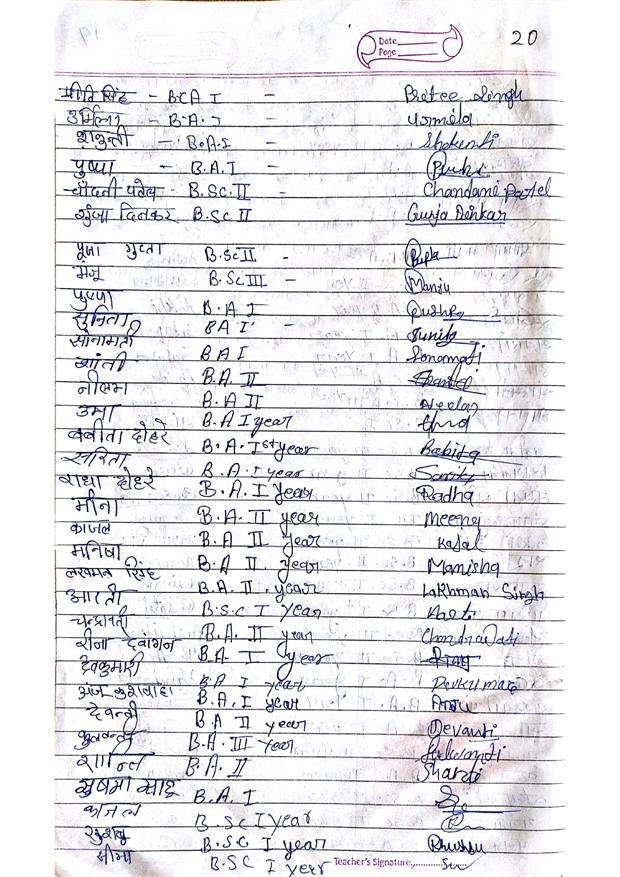 20
Date
Page
प्रीति सिंह - BCA I - Pratee Singh
उर्मिला - B.A. I - Urmila
शकुन्ती - B.A.I - Shakunti
पुष्पा - B.A.I -
चाँदनी पटेल - B.Sc.II - Chandani Patel
गुंजा दिनकर B.Sc II - Gunja Dinkar
पूजा गुप्ता B.Sc II -
मंजू B.Sc III - Manju
पुष्पा B.A I Pushpa
सुनिता BA I - Sunita
सोनामती BA I Sonamati
शांती B.A. II
नीलम B.A II Neelam
उमा B.A I year
बबीता दोहरे B.A. Ist year Babita
सरिता B.A. I year Sarita
राधा दोहरे B.A. I year Radha
मीना B.A. II year Meena
काजल B.A II year Kajal
मनिषा B.A II year Manisha
लखमन सिंह B.A. II. year Lakhman Singh
आरती B.S.C I year Aarti
चन्द्रावती B.A. II year Chandrawati
रीना देवांगन B.A. I year
देवकुमारी B.A I year Devkumari
अंजू कुशवाहा B.A. I year Anju
देवन्ती B.A II year Devanti
कुलवन्ती B.A. III year Kulwanti
शान्ति B.A. II Shanti
सुषमा साहू B.A. I
काजल B.Sc I year
खुशबू B.SC I year Khushbu
सीमा B.SC I year
Teacher's Signature